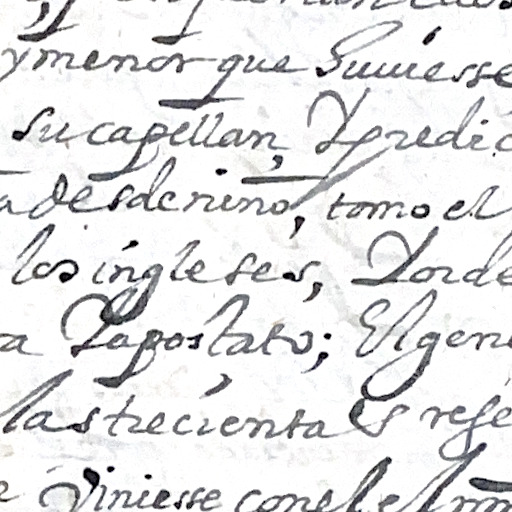 y menor que huuiesse
su capellan, Y predic
a desde nino, tomo el
los ingleses, Y or de
a Y apostato; El gen
las trecientas refe
Viniesse con el el